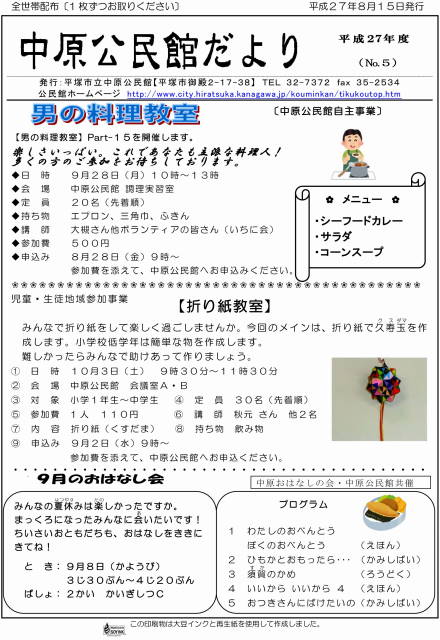 全世帯配布〔1枚ずつお取りください〕
平成27年8月15日発行
中原公民館だより
平成27年度
(No.5)
発行:平塚市立中原公民館【平塚市御殿2-17-38】 TEL 32-7372 fax 35-2534
公民館ホームページ http://www.city.hiratsuka.kanagawa.jp/kouminkan/tikukoutop.htm
男の料理教室
〔中原公民館自主事業〕
【男の料理教室】Part-15を開催します。
楽しさいっぱい。これであなたも主派な料理人!
多くの方のご参加をお待ちしております。
◆日 時 9月28日(月)10時~13時
◆会 場 中原公民館 調理実習室
◆定 員 20名(先着順)
◆持ち物 エプロン、三角巾、ふきん
◆講 師 大槻さん他ボランティアの皆さん(いちに会)
◆参加費 500円
◆申込み 8月28日(金)9時~
参加費を添えて、中原公民館へお申込みください。
✿ メニュー ✿
・シーフードカレー
・サラダ
・コーンスープ
児童・生徒地域参加事業
【折り紙教室】
みんなで折り紙をして楽しく過ごしませんか。今回のメインは、折り紙で久寿玉を作
クスダマ
成します。小学校低学年は簡単な物を作成します。
難しかったらみんなで助けあって作りましょう。
① 日 時 10月3日(土) 9時30分~11時30分
② 会 場 中原公民館 会議室A・B
③ 対 象 小学1年生~中学生 ④ 定 員 30名(先着順)
⑤ 参加費 1人 110円 ⑥ 講 師 秋元 さん 他2名
⑦ 内 容 折り紙(くすだま) ⑧ 持ち物 飲み物
⑨ 申込み 9月2日(水)9時~
参加費を添えて、中原公民館へお申込みください。
9月のおはなし会
中原おはなしの会・中原公民館共催
みんなの夏休みは楽しかったですか。
まっくろになったみんなに会いたいです!
ちいさいおともだちも、おはなしをききに
きてね!
と き:9月8日(かようび)
3じ30ぷん~4じ20ぷん
ばしょ:2かい かいぎしつC
プログラム
1 わたしのおべんとう
ぼくのおべんとう (えほん)
2 ひもかとおもったら… (かみしばい)
3 須賀のかめ (ろうどく)
4 いいから いいから 4 (えほん)
5 おつきさんにばけたいの(かみしばい)
この印刷物は大豆インクと再生紙を使用して作りました。